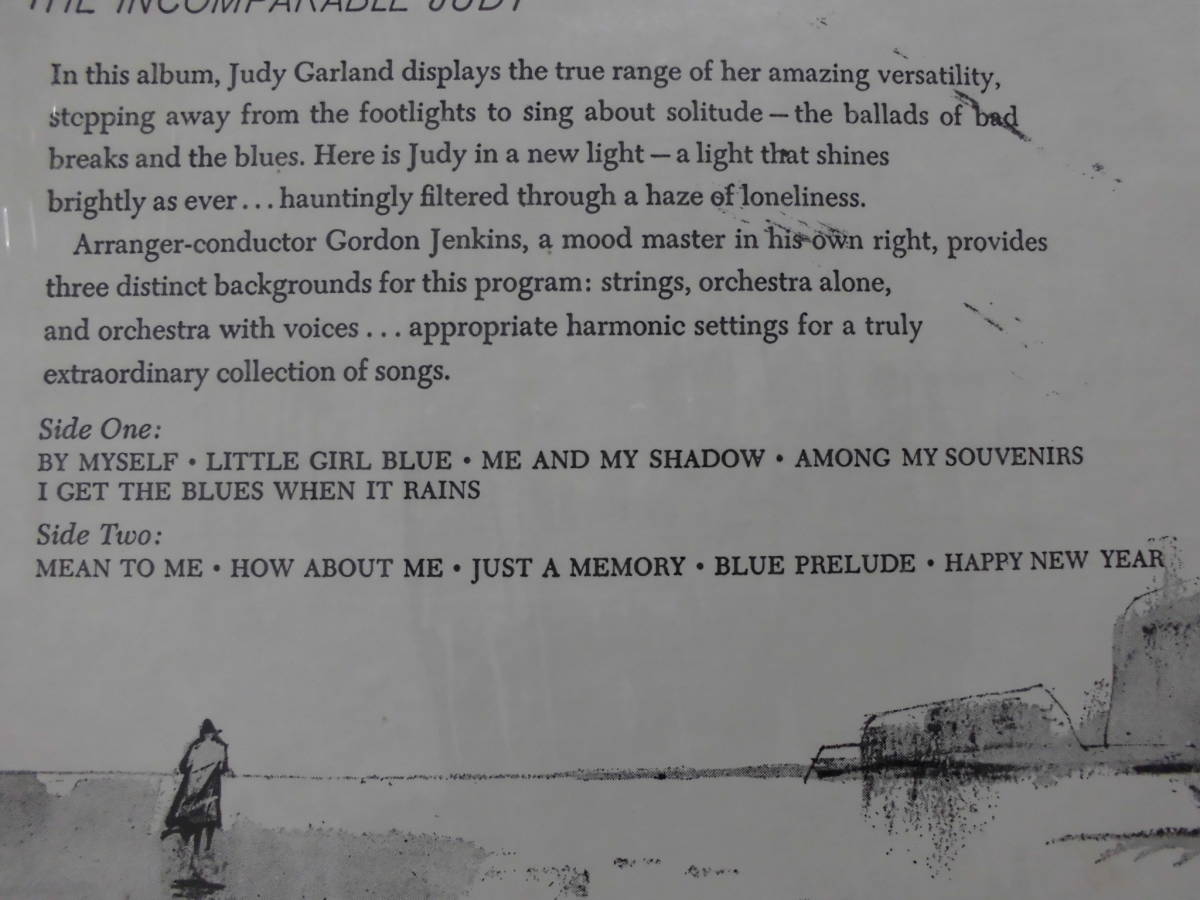 THE INCOMPARABLE JUDY
In this album, Judy Garland displays the true range of her amazing versatility,
stepping away from the footlights to sing about solitude — the ballads of bad
breaks and the blues. Here is Judy in a new light — a light that shines
brightly as ever . . . hauntingly filtered through a haze of loneliness.
Arranger-conductor Gordon Jenkins, a mood master in his own right, provides
three distinct backgrounds for this program: strings, orchestra alone,
and orchestra with voices . . . appropriate harmonic settings for a truly
extraordinary collection of songs.
Side One:
BY MYSELF • LITTLE GIRL BLUE • ME AND MY SHADOW • AMONG MY SOUVENIRS
I GET THE BLUES WHEN IT RAINS
Side Two:
MEAN TO ME • HOW ABOUT ME • JUST A MEMORY • BLUE PRELUDE • HAPPY NEW YEAR